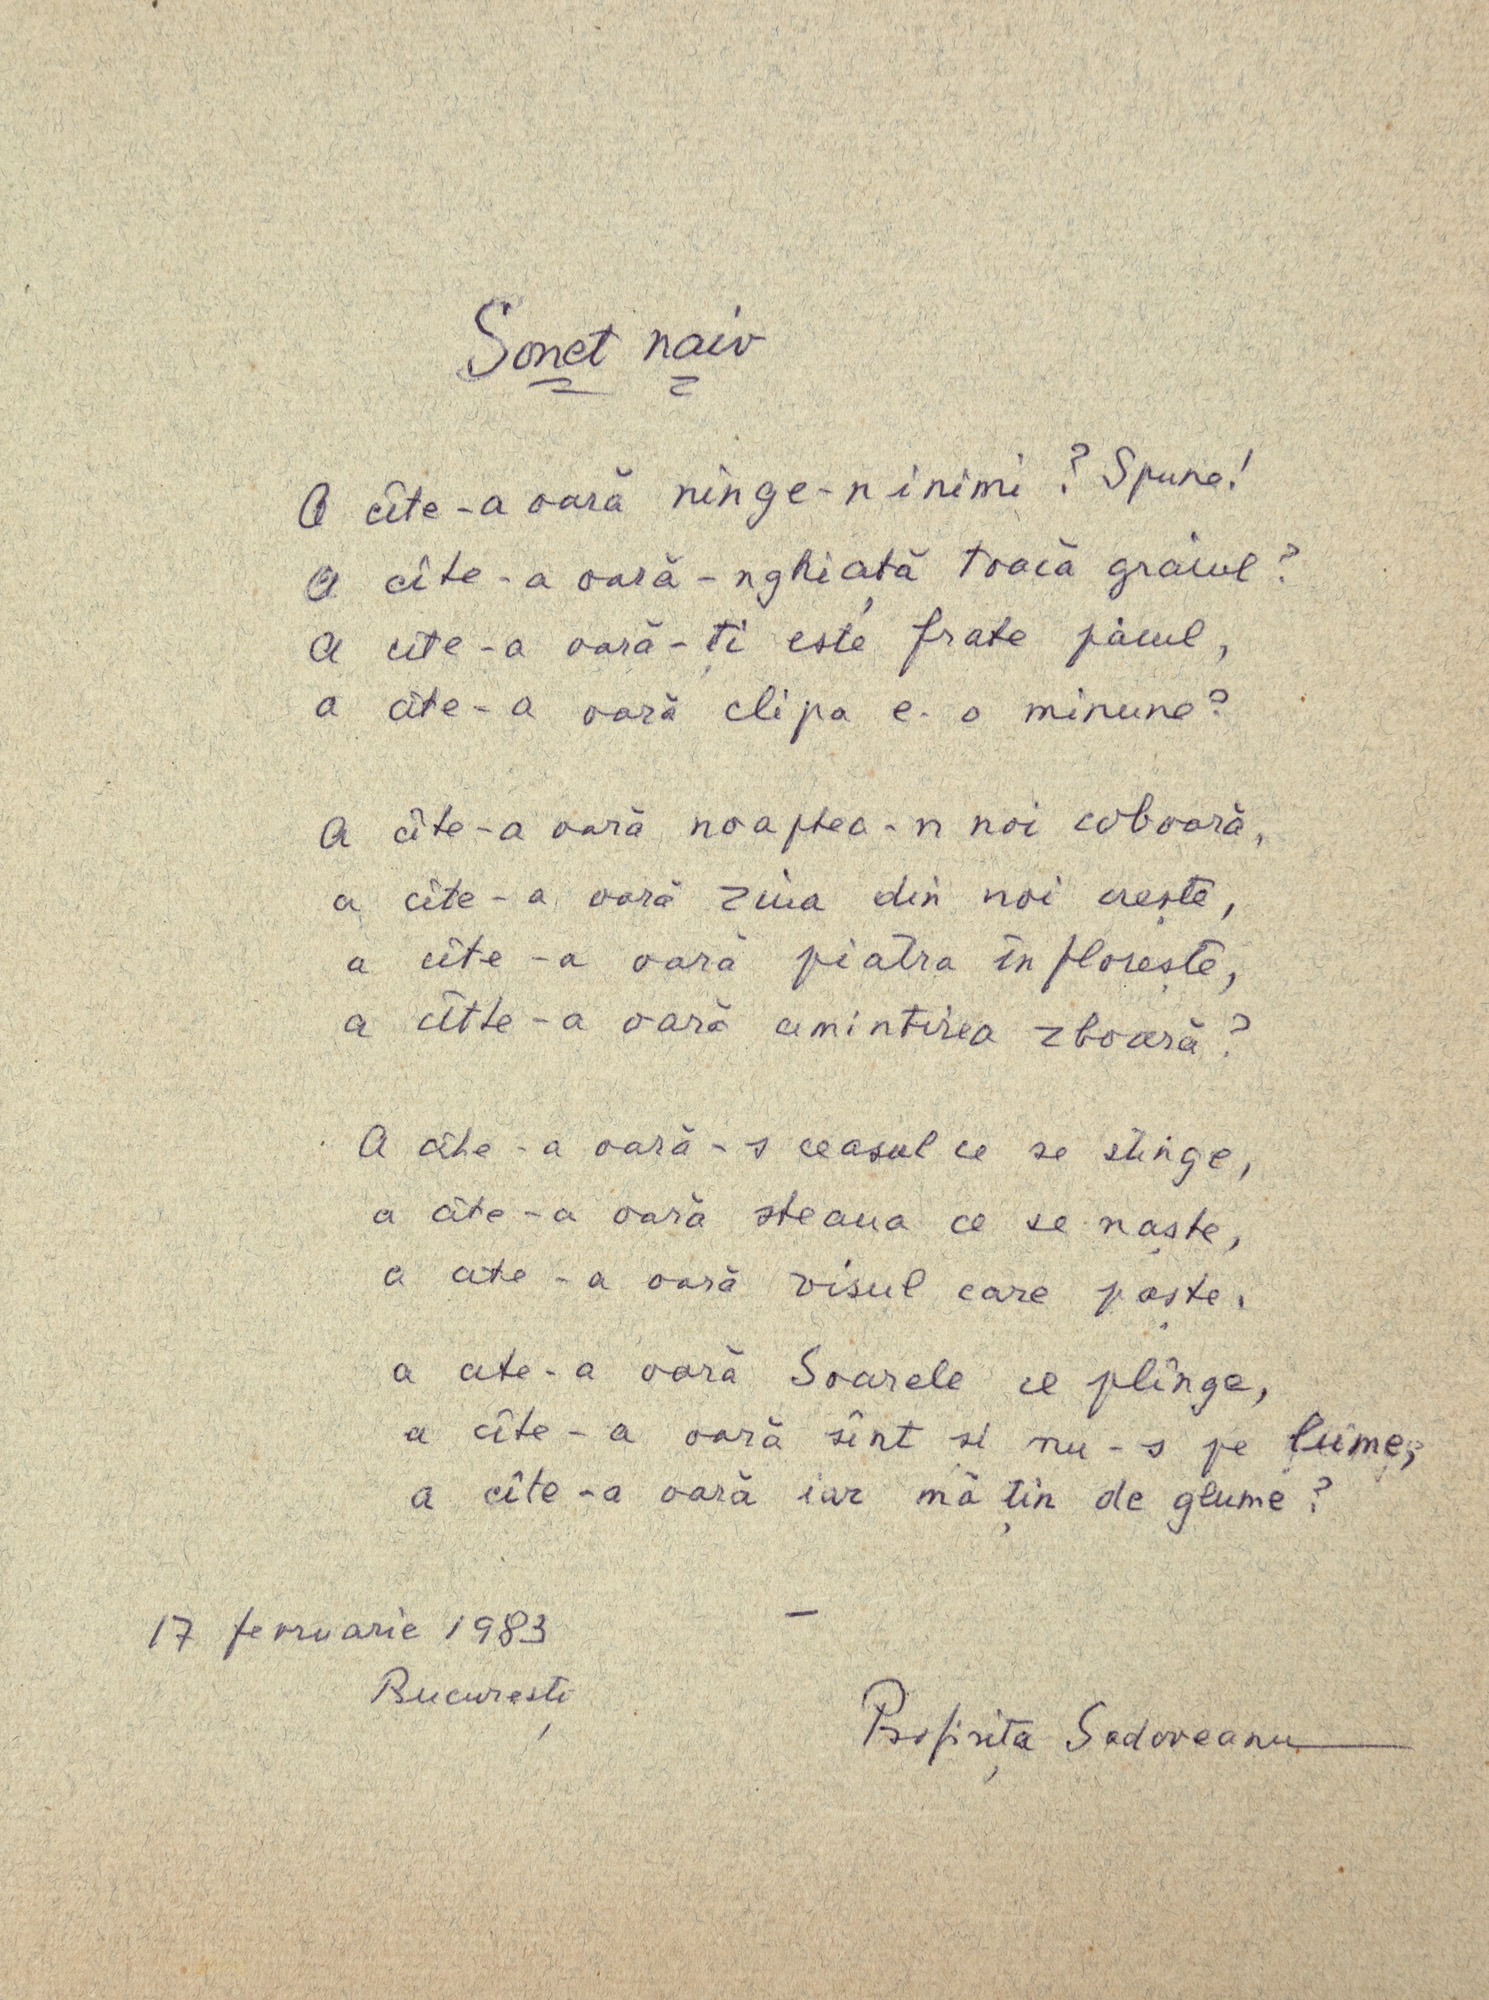 Sonet naiv
A cîte-a oară ninge-n inimi? Spune!
A cîte-a oară-nghiață toacă graiul?
A cîte-a oară-ți este frate paiul,
a cîte-a oară clipa e o minune?
A cîte-a oară noaptea-n noi coboară,
a cîte-a oară ziua din noi crește,
a cîte-a oară piatra înflorește,
a cîtte-a oară amintirea zboară?
A cîte-a oară-s ceasul ce se stinge,
a cîte-a oară steaua ce se naște,
a cîte-a oară visul care paște,
a cîte-a oară Soarele ce plînge,
a cîte-a oară sînt si nu-s pe lume,
a cîte-a oară iar mă țin de glume?
17 februarie 1983
București
Profirița Sadoveanu